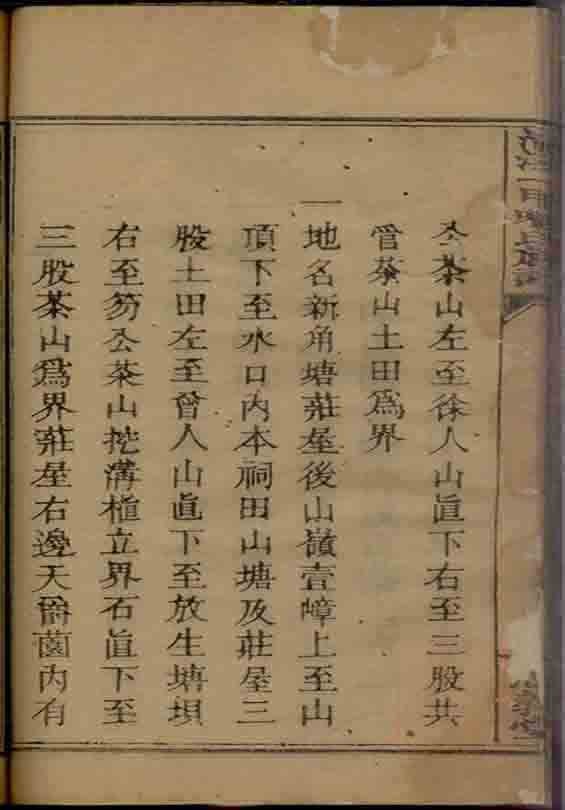 公茶山左至徐人山眞下右至三股共
管茶山土田爲界
一地名新角塘莊屋後山嶺壹嶂上至山
頂下至水口內本祠田山塘及莊屋三
股土田左至曾人山直下至放生塘垻
右至笏公茶山挖溝植立界石眞下至
三股茶山爲界莊屋右邊天爵薗內有